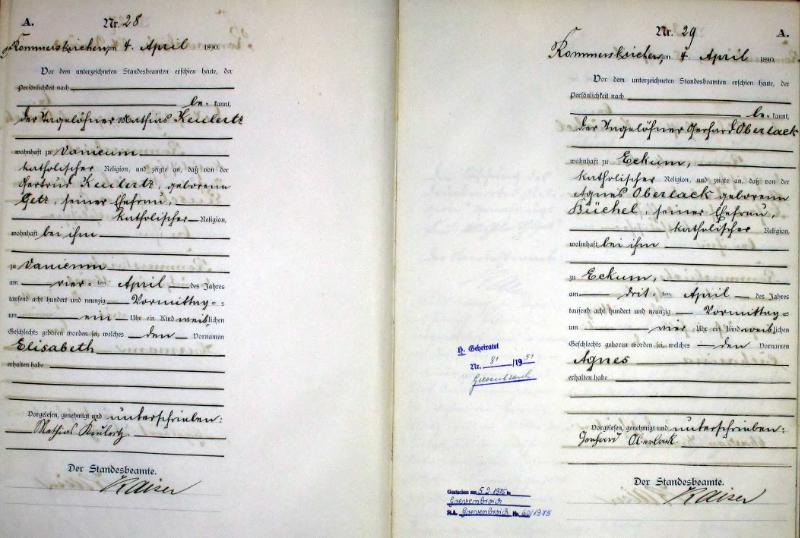 A.
Nr. 28
Rommerskirchen, am 4. April 1890.
Vor dem unterzeichneten Standesbeamten erschien heute, der
Persönlichkeit nach
be= kannt,
der Tagelöhner Mathias Keulertz
wohnhaft zu Vanicum
katholischer Religion, und zeigte an, daß von der
Gertrud Keulertz, geborenen
Getz, seiner Ehefrau,
katholischer Religion,
wohnhaft bei ihm
zu Vanicum
am vier ten April des Jahres
tausend acht hundert und neunzig Vormittag=s
um ein Uhr ein Kind weiblichen
Geschlechts geboren worden sei, welches den Vornamen
Elisabeth
erhalten habe
Vorgelesen, genehmigt und unterschrieben:
Mathias Keulertz
Der Standesbeamte.
Kaiser
Nr. 29
A.
Rommerskirchen, am 4. April 1890.
Vor dem unterzeichneten Standesbeamten erschien heute, der
Persönlichkeit nach
be= kannt,
der Tagelöhner Gerhard Oberlack
wohnhaft zu Eckum,
katholischer Religion, und zeigte an, daß von der
Agnes Oberlack geborenen
Büchel, seiner Ehefrau,
katholischer Religion,
wohnhaft bei ihm
zu Eckum,
am drit ten April des Jahres
tausend acht hundert und neunzig Vormittag=
um vier Uhr ein Kind weiblichen
Geschlechts geboren worden sei, welches den Vornamen
Agnes
erhalten habe
Vorgelesen, genehmigt und unterschrieben:
Gerhard Oberlack
Der Standesbeamte.
Kaiser
Geheiratet
Nr. 81 /1951
Grevenbroich
Gestorben am 5.2.1975 in
Grevenbroich
St.A. Grevenbroich Nr. 60/1975